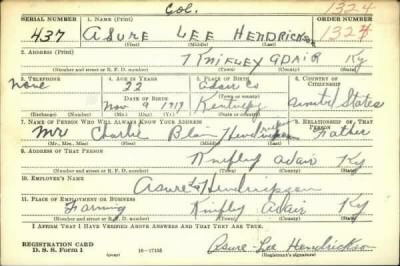 Col. 1324
SERIAL NUMBER 1. NAME (Print) ORDER NUMBER
437 ASURE LEE HENDRICKSON 1324
(First) (Middle) (Last)
2. ADDRESS (Print)
KNIFLEY ADAIR Ky
(Number and street or R. F. D. number) (Town) (County) (State)
3. TELEPHONE 4. AGE IN YEARS 5. PLACE OF BIRTH 6. COUNTRY OF CITIZENSHIP
None 22
DATE OF BIRTH (Town or county)
Nov 9 1917 Kentucky United States
(Exchange) (Number) (Mo.) (Day) (Yr.) (State or country)
7. NAME OF PERSON WHO WILL ALWAYS KNOW YOUR ADDRESS 8. RELATIONSHIP OF THAT PERSON
Mr Charlie Hendrickson Father
(Mr., Mrs., Miss) (First) (Middle) (Last)
9. ADDRESS OF THAT PERSON
Knifley Adair Ky
(Number and street or R. F. D. number) (Town) (County) (State)
10. EMPLOYER'S NAME
Hendrickson
11. PLACE OF EMPLOYMENT OR BUSINESS
Farming Knifley Adair Ky
(Number and street or R. F. D. number) (Town) (County) (State)
I AFFIRM THAT I HAVE VERIFIED ABOVE ANSWERS AND THAT THEY ARE TRUE.
REGISTRATION CARD
D. S. S. Form 1 (over) Asure Lee Hendrickson
(Registrant's signature)